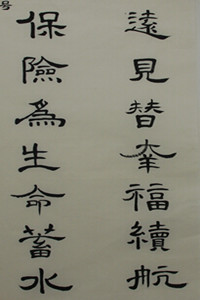 遠見替幸福續航
保險爲生命蓄水
号